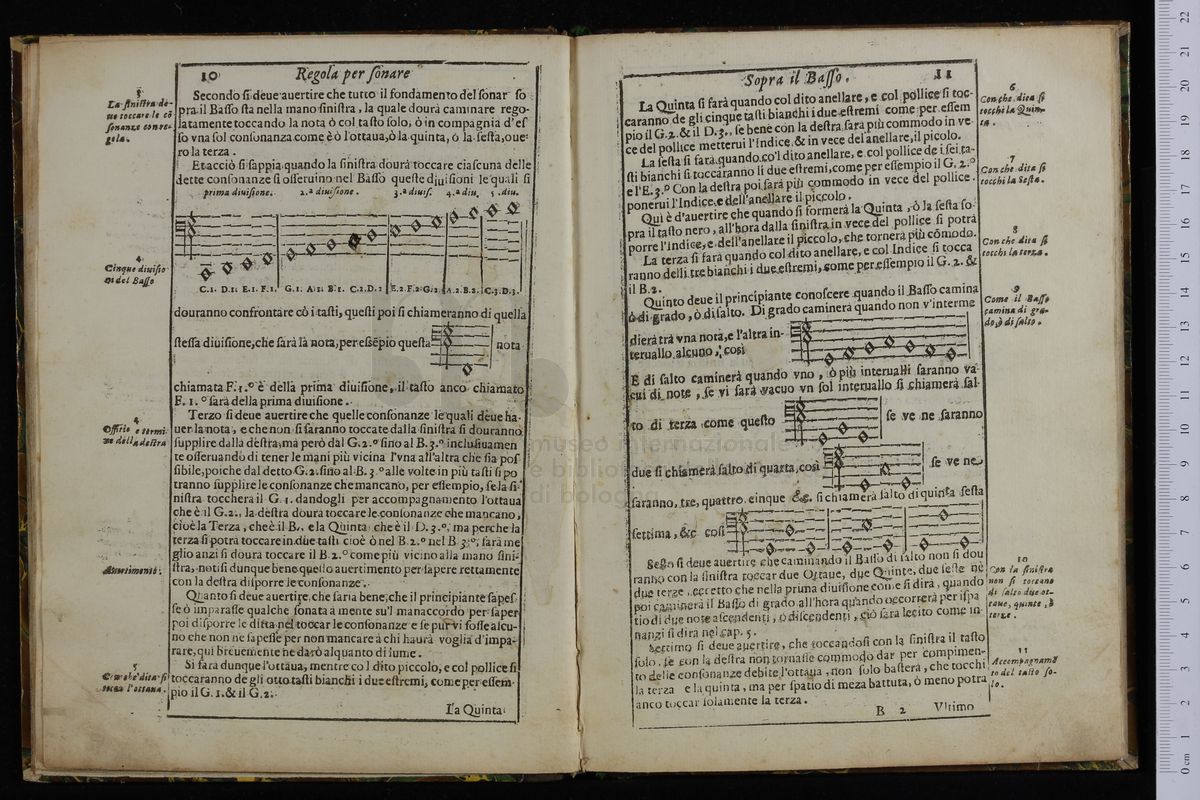 10 Regola per ſonare
3
La ſiniſtra de-
ue toccare le cõ
ſonanze con re-
gola.
Secondo ſi deue auertire che tutto il fondamento del ſonar ſo
pra il Baſſo ſta nella mano ſiniſtra, la quale dourà caminare rego-
latamente toccando la nota ò col taſto ſolo, ò in compagnia d'eſ
ſo vna ſol conſonanza come è ò l'ottaua, ò la quinta, ò la ſeſta, oue-
ro la terza.
Et acciò ſi ſappia quando la ſiniſtra dourà toccare ciaſcuna delle
dette conſonanze ſi oſſeruino nel Baſſo queſte diuiſioni le quali ſi
prima diuiſione. 2.ª diuiſione. 3.ª diuiſ. 4.ª diu. 5. diu.
4
Cinque diuiſio
ni del Baſſo
C.1. D.1. E.1. F.1. G.1. A.1. B.1. C.2. D.2 E.2. F.2. G.2. A.2. B.2. C.3. D.3.
douranno confrontare cõ i taſti, queſti poi ſi chiameranno di quella
ſteſſa diuiſione, che ſarà là nota, per eſſẽpio queſta nota
chiamata F. 1.º è della prima diuiſione, il taſto anco chiamato
F. 1.º ſarà della prima diuiſione.
4
Offitio e termi
ne della deſtra
Terzo ſi deue auertire che quelle conſonanze le quali deue ha-
uer la nota, e che non ſi ſaranno toccate dalla ſiniſtra ſi douranno
ſupplire dalla deſtra, ma però dal G. 2.º ſino al B. 3.º incluſiuamen
te oſſeruando di tener le mani più vicina l'vna all'altra che ſia poſ
ſibile, poiche dal detto G. 2. ſino al B. 3.º alle volte in più taſti ſi po
tranno ſupplire le conſonanze che mancano, per eſſempio, ſe la ſi-
niſtra toccherà il G. 1. dandogli per accompagnamento l'ottaua
che è il G. 2., la deſtra dourà toccare le conſonanze che mancano,
cioè la Terza, che è il B., e la Quinta che è il D. 3.º, ma perche la
terza ſi potrà toccare in due taſti cioè ò nel B. 2.º nel B 3.º, ſarà me
glio anzi ſi dourà toccare il B. 2.º come più vicino alla mano ſini-
Auertimento.
ſtra, notiſi dunque bene queſto auertimento per ſapere rettamente
con la deſtra diſporre le conſonanze.
Quanto ſi deue auertire, che ſaria bene, che il principiante ſapeſ
ſe ò imparaſſe qualche ſonata à mente su'l manaccordo per ſaper
poi diſporre le dita nel toccar le conſonanze e ſe pur vi foſſe alcu-
no che non ne ſapeſſe per non mancare à chi haurà voglia d'impa-
rare, qui breuemente ne darò alquanto di lume.
5
Con che dita ſi
tocca l'ottaua.
Si farà dunque l'ottaua, mentre co'l dito piccolo, e col pollice ſi
toccaranno de gli otto taſti bianchi i due eſtremi, come per eſſem-
pio il G. 1. & il G. 2..
La Quinta
Sopra il Baſſo. 11
La Quinta ſi farà quando col dito anellare, e col pollice ſi toc-
caranno de gli cinque taſti bianchi i due eſtremi come per eſſem
pio il G. 2. & il D. 3., ſe bene con la deſtra ſarà più commodo in ve-
ce del pollice metterui l'Indice & in vece del anellare, il piccolo.
6
Con che dita ſi
tocchi la Quin-
ta.
La ſeſta ſi farà quando co'l dito anellare, e col pollice de i ſei ta-
ſti bianchi ſi toccaranno li due eſtremi, come per eſſempio il G. 2.º
e l'E. 3.º Con la deſtra poi ſarà più commodo in vece del pollice
ponerui l'Indice e dell'anellare il piccolo.
7
Con che dita ſi
tocchi la Seſta.
Qui è d'auertire che quando ſi formerà la Quinta, ò la ſeſta ſo-
pra il taſto nero, all'hora dalla ſiniſtra in vece del pollice ſi potrà
porre l'indice, e dell'anellare il piccolo, che tornerà più cõmodo.
8
Con che dita ſi
tocchi la terza.
La terza ſi farà quando col dito anellare, e col Indice ſi tocca
ranno delli tre bianchi i due eſtremi, come per eſſempio il G. 2. &
il B. 2.
9
Come il Baſſo
camina di gra-
do, ò di ſalto.
Quinto deue il principiante conoſcere quando il Baſſo camina
ò di grado, ò di ſalto. Di grado caminerà quando non v'interme
dierà trà vna nota, e l'altra in-
teruallo alcuno, così
E di ſalto caminerà quando vno, ò più interualli ſaranno va
cui di note, ſe vi ſarà vacuo vn ſol interuallo ſi chiamerà ſal-
to di terza come queſto ſe ve ne ſaranno
due ſi chiamerà ſalto di quarta, così ſe ve ne
ſaranno, tre, quattro, cinque &c. ſi chiamerà ſalto di quinta ſeſta
ſettima, &c così
10
Con la ſiniſtra
non ſi toccano
di ſalto due ot-
taue, quinte, ò
terze.
Seſto ſi deue auertire che caminando il Baſſo di ſalto non ſi dou
ranno con la ſiniſtra toccar due Ottaue, due Quinte, due ſeſte nè
due terze, eccetto che nella prima diuiſione come ſi dirà, quando
poi caminerà il Baſſo di grado all'hora quando occorrerà per iſpa
tio di due note aſcendenti, ò diſcendenti, ciò ſarà lecito come in-
nanzi ſi dira nel cap. 5.
11
Accompagnamē
to del taſto ſo-
lo.
Settimo ſi deue auertire, che toccandoſi con la ſiniſtra il taſto
ſolo, ſe con la deſtra non tornaſſe commodo dar per compimen-
to delle conſonanze debite l'ottaua, non ſolo baſterà, che tocchi
la terza e la quinta, ma per ſpatio di meza battuta, ò meno potrà
anco toccar ſolamente la terza.
B 2 Vltimo
museo internazionale
e biblioteca
di bologna